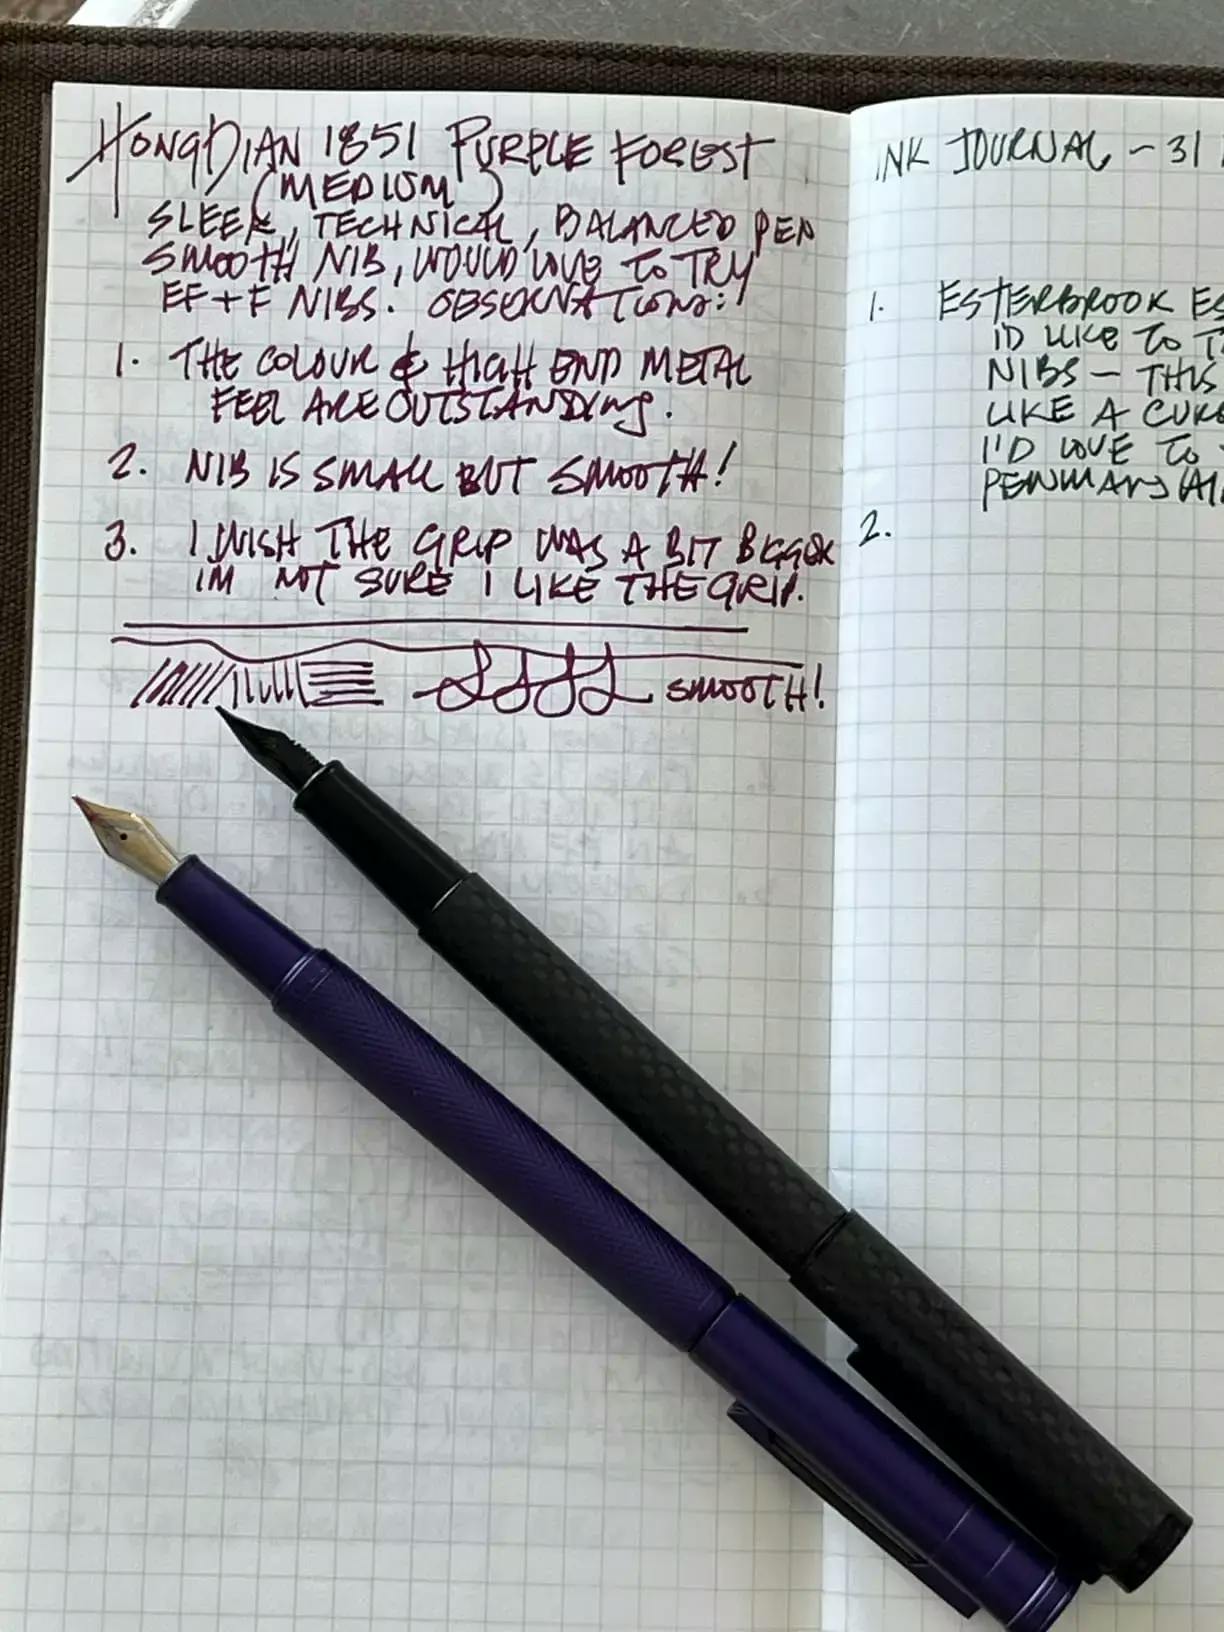 HONGDIAN 1851 PURPLE FOREST
(MEDIUM)
SLEEK, TECHNICAL, BALANCED PEN
SMOOTH NIB, WOULD LOVE TO TRY
EF + F NIBS. OBSERVATIONS:
1. THE COLOUR & HIGH END METAL
FEEL ARE OUTSTANDING.
2. NIB IS SMALL BUT SMOOTH!
3. I WISH THE GRIP WAS A BIT BIGGER
IM NOT SURE I LIKE THE GRIP.
SMOOTH!
INK JOURNAL - 31
1. ESTERBROOK ES
I'D LIKE TO T
NIBS - THIS
LIKE A
I'D LOVE TO
2.